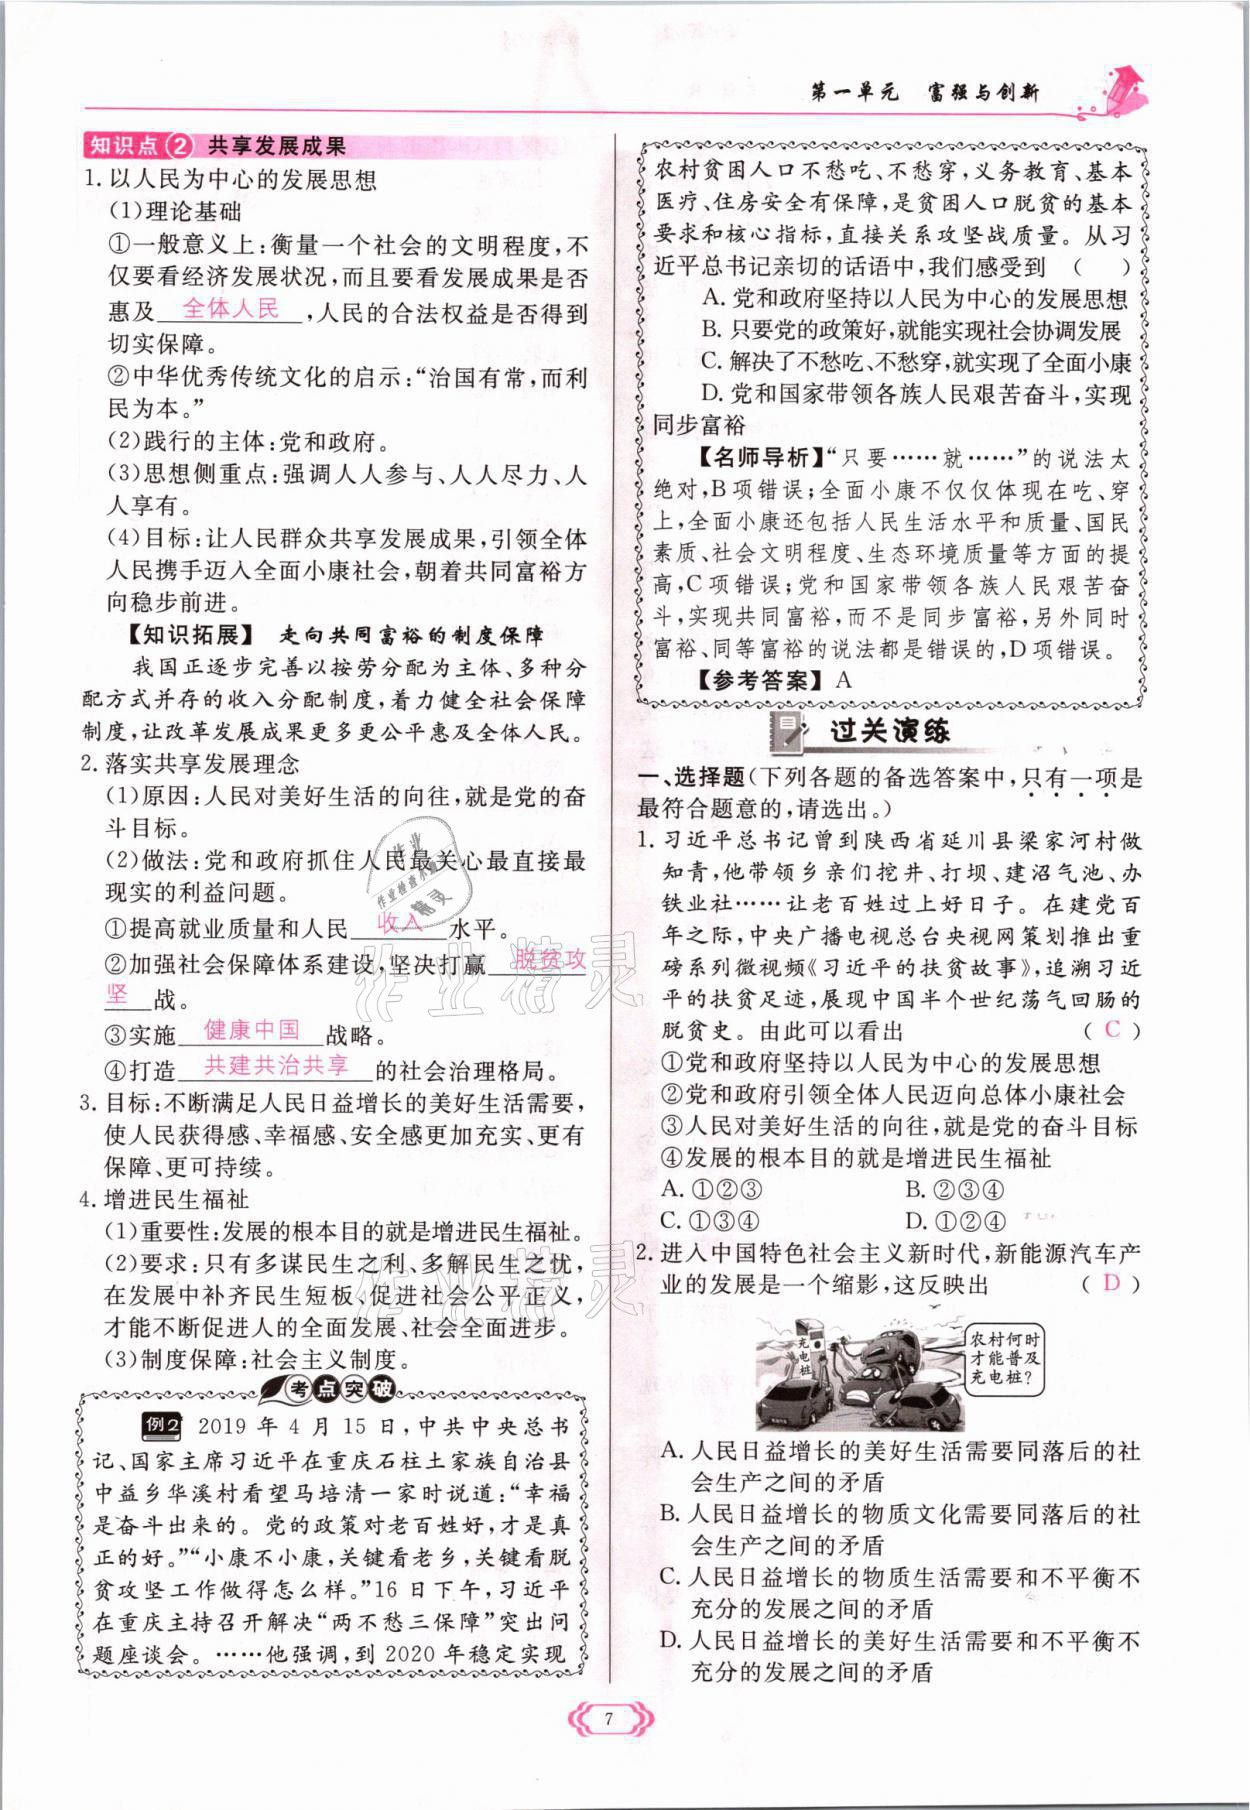 第一单元 富强与创新
知识点2 共享发展成果
1. 以人民为中心的发展思想
(1)理论基础
①一般意义上:衡量一个社会的文明程度,不
仅要看经济发展状况,而且要看发展成果是否
惠及 全体人民 ,人民的合法权益是否得到
切实保障。
②中华优秀传统文化的启示:“治国有常,而利
民为本。”
(2)践行的主体:党和政府。
(3)思想侧重点:强调人人参与、人人尽力、人
人享有。
(4)目标:让人民群众共享发展成果,引领全体
人民携手迈入全面小康社会,朝着共同富裕方
向稳步前进。
【知识拓展】 走向共同富裕的制度保障
我国正逐步完善以按劳分配为主体、多种分
配方式并存的收入分配制度,着力健全社会保障
制度,让改革发展成果更多更公平惠及全体人民。
2. 落实共享发展理念
(1)原因:人民对美好生活的向往,就是党的奋
斗目标。
(2)做法:党和政府抓住人民最关心最直接最
现实的利益问题。
①提高就业质量和人民 收入 水平。
②加强社会保障体系建设,坚决打赢 脱贫攻
坚 战。
③实施 健康中国 战略。
④打造 共建共治共享 的社会治理格局。
3. 目标:不断满足人民日益增长的美好生活需要,
使人民获得感、幸福感、安全感更加充实、更有
保障、更可持续。
4. 增进民生福祉
(1)重要性:发展的根本目的就是增进民生福祉。
(2)要求:只有多谋民生之利、多解民生之忧,
在发展中补齐民生短板、促进社会公平正义,
才能不断促进人的全面发展、社会全面进步。
(3)制度保障:社会主义制度。
考点突破
例2 2019年4月15日,中共中央总书
记、国家主席习近平在重庆石柱土家族自治县
中益乡华溪村看望马培清一家时说道:“幸福
是奋斗出来的。党的政策对老百姓好,才是真
正的好。”“小康不小康,关键看老乡,关键看脱
贫攻坚工作做得怎么样。”16日下午,习近平
在重庆主持召开解决“两不愁三保障”突出问
题座谈会。……他强调,到2020年稳定实现
农村贫困人口不愁吃、不愁穿,义务教育、基本
医疗、住房安全有保障,是贫困人口脱贫的基本
要求和核心指标,直接关系攻坚战质量。从习
近平总书记亲切的话语中,我们感受到 ( )
A. 党和政府坚持以人民为中心的发展思想
B. 只要党的政策好,就能实现社会协调发展
C. 解决了不愁吃、不愁穿,就实现了全面小康
D. 党和国家带领各族人民艰苦奋斗,实现
同步富裕
【名师导析】“只要……就……”的说法太
绝对,B项错误;全面小康不仅仅体现在吃、穿
上,全面小康还包括人民生活水平和质量、国民
素质、社会文明程度、生态环境质量等方面的提
高,C项错误;党和国家带领各族人民艰苦奋
斗,实现共同富裕,而不是同步富裕,另外同时
富裕、同等富裕的说法都是错误的,D项错误。
【参考答案】A
过关演练
一、选择题(下列各题的备选答案中,只有一项是
最符合题意的,请选出。)
1. 习近平总书记曾到陕西省延川县梁家河村做
知青,他带领乡亲们挖井、打坝、建沼气池、办
铁业社……让老百姓过上好日子。在建党百
年之际,中央广播电视总台央视网策划推出重
磅系列微视频《习近平的扶贫故事》,追溯习近
平的扶贫足迹,展现中国半个世纪荡气回肠的
脱贫史。由此可以看出 ( C )
①党和政府坚持以人民为中心的发展思想
②党和政府引领全体人民迈向总体小康社会
③人民对美好生活的向往,就是党的奋斗目标
④发展的根本目的就是增进民生福祉
A. ①②③ B. ②③④
C. ①③④ D. ①②④
2. 进入中国特色社会主义新时代,新能源汽车产
业的发展是一个缩影,这反映出 ( D )
充电桩
农村何时
才能普及
充电桩?
A. 人民日益增长的美好生活需要同落后的社
会生产之间的矛盾
B. 人民日益增长的物质文化需要同落后的社
会生产之间的矛盾
C. 人民日益增长的物质生活需要和不平衡不
充分的发展之间的矛盾
D. 人民日益增长的美好生活需要和不平衡不
充分的发展之间的矛盾
7
作业精灵
作业精灵
作业
作业检查小助手
精灵